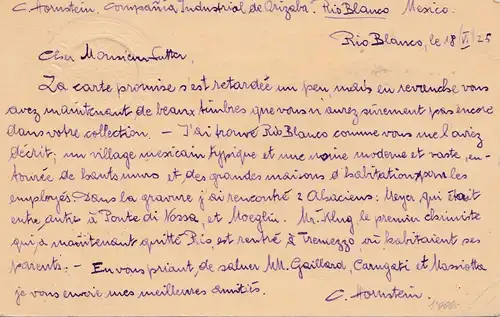 C. Hornstein. Compañia Industrial de Orizaba. Rio Blanco Mexico.
Rio Blanco, le 18/VI 25
Cher Monsieur Sutter,
La carte promise s'est retardée un peu mais en revanche vous
avez maintenant de beaux timbres que vous n'aurez sûrement pas encore
dans votre collection. — J'ai trouvé Rio Blanco comme vous me l'aviez
décrit; un village mexicain typique et une usine moderne et vaste, en-
tourée de hauts murs et des grandes maisons d'habitation pour les
employés. Dans la gravure j'ai rencontré 2 Alsaciens: Meyer qui était
entre autre à Ponte di Nossa, et Moeglin. Mr. Klug le premier chimiste
qui a maintenant quitté Rio est rentré à Tremezzo, où habitaient ses
parents. — En vous priant, de saluer MM. Gaillard, Carugati et Massiotta
je vous envoie mes meilleures amitiés.
C. Hornstein.